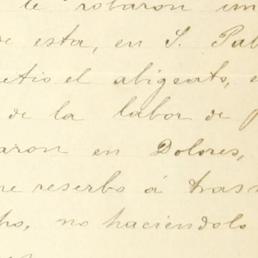 le robaron un
se esta, en S. Pab
etio el abigeato, e
de la labor de p
aron en Dolores,
re reserbo á tras
ho, no haciendolo